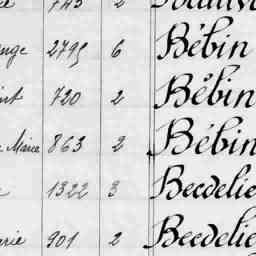 745 2
2795 6 Bébin
720 2 Bébin
Marie 863 2 Bébin
1322 3 Becdelie
901 2 Becdelie